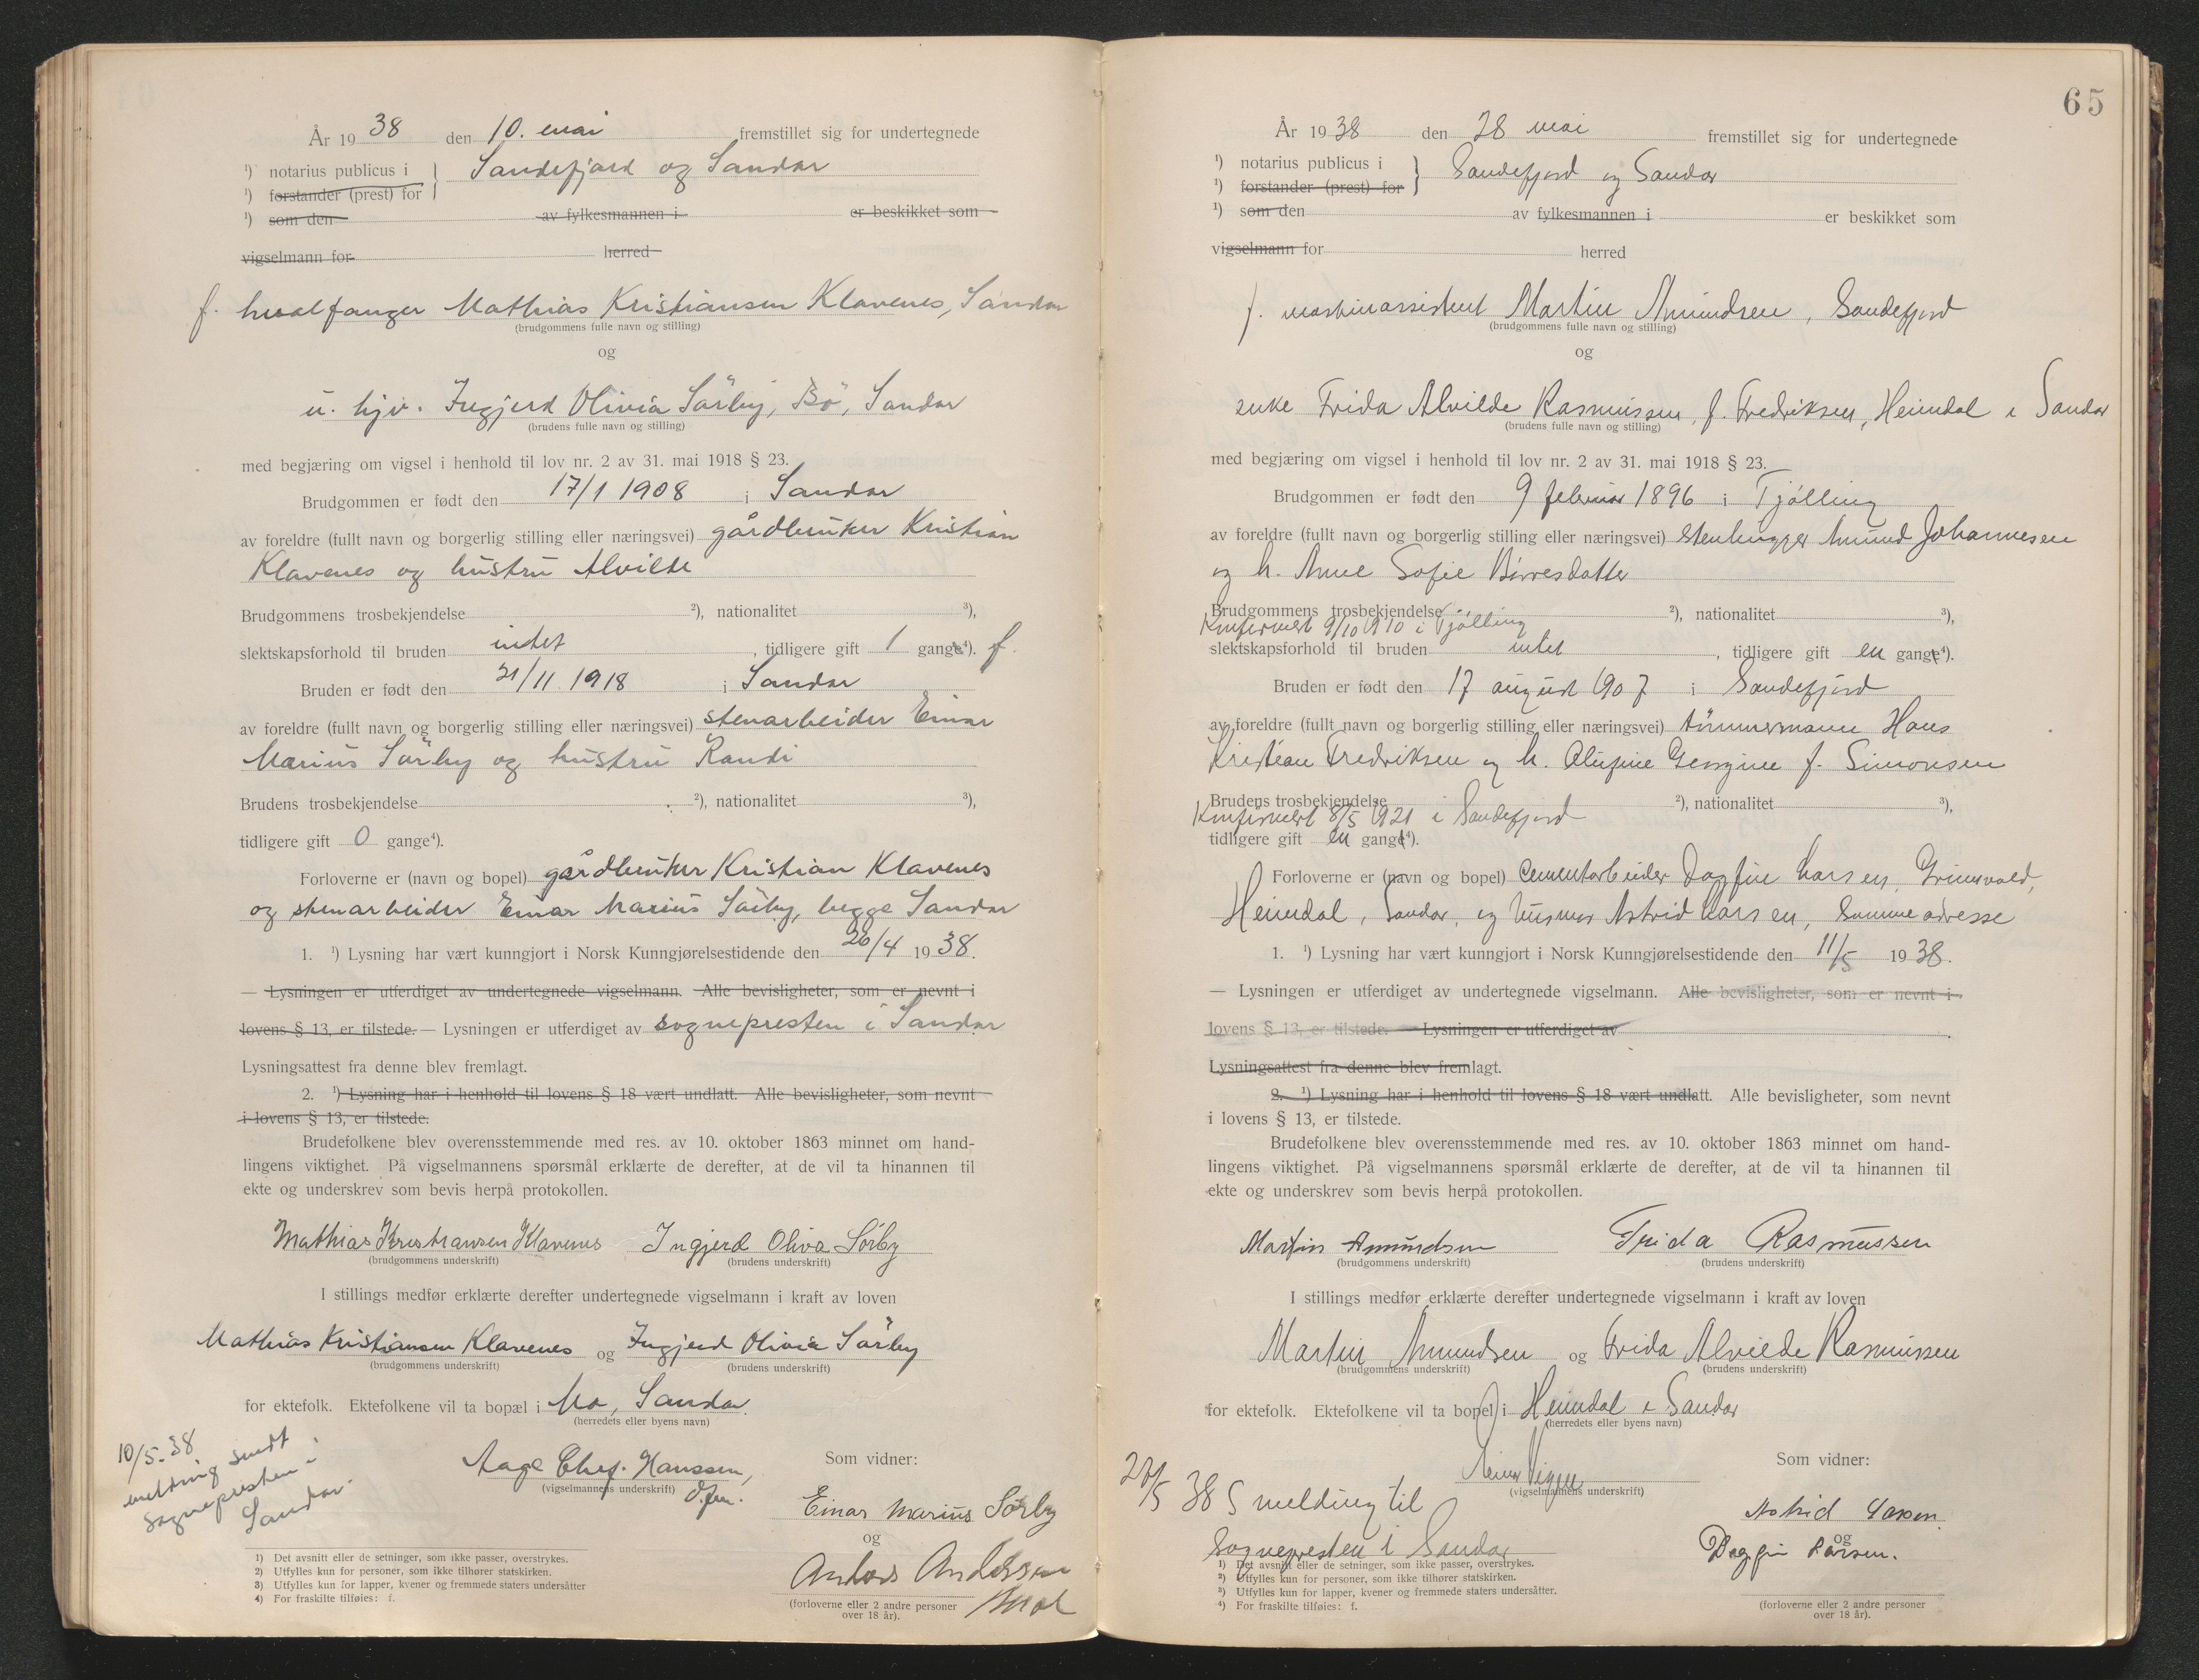 År 1938 den 10. mai fremstillet sig for undertegnede
¹) notarius publicus i } Sandefjord og Sandar
¹) forstander (prest) for
¹) som den av fylkesmannen i er beskikket som
vigselmann for herred
f. hvalfanger Mathias Kristiansen Klavenes, Sandar
(brudgommens fulle navn og stilling)
og
u. hjv. Ingjerd Olivia Sørby, Bø, Sandar
(brudens fulle navn og stilling)
med begjæring om vigsel i henhold til lov nr. 2 av 31. mai 1918 § 23.
Brudgommen er født den 17/1 1908 i Sandar
av foreldre (fullt navn og borgerlig stilling eller næringsvei) gårdbruker Kristian
Klavenes og hustru Alvilde
Brudgommens trosbekjendelse ²), nationalitet ³),
slektskapsforhold til bruden intet, tidligere gift 1 gange⁴). f.
Bruden er født den 21/11 1918 i Sandar
av foreldre (fullt navn og borgerlig stilling eller næringsvei) stenarbeider Einar
Marius Sørby og hustru Randi
Brudens trosbekjendelse ²), nationalitet ³),
tidligere gift 0 gange⁴).
Forloverne er (navn og bopel) gårdbruker Kristian Klavenes
og stenarbeider Einar Marius Sørby, begge Sandar
1. ¹) Lysning har vært kunngjort i Norsk Kunngjørelsestidende den 26/4 1938.
— Lysningen er utferdiget av undertegnede vigselmann. Alle bevisligheter, som er nevnt i
lovens § 13, er tilstede. — Lysningen er utferdiget av sognepresten i Sandar
Lysningsattest fra denne blev fremlagt.
2. ¹) Lysning har i henhold til lovens § 18 vært undlatt. Alle bevisligheter, som nevnt
i lovens § 13, er tilstede.
Brudefolkene blev overensstemmende med res. av 10. oktober 1863 minnet om hand-
lingens viktighet. På vigselmannens spørsmål erklærte de derefter, at de vil ta hinannen til
ekte og underskrev som bevis herpå protokollen.
Mathias Kristiansen Klavenes Ingjerd Oliva Sörby
(brudgommens underskrift) (brudens underskrift)
I stillings medfør erklærte derefter undertegnede vigselmann i kraft av loven
Mathias Kristiansen Klavenes og Ingjerd Olivia Sørby
(brudgommens underskrift) (brudens underskrift)
for ektefolk. Ektefolkene vil ta bopæl i Mo, Sandar.
(herredets eller byens navn)
10/5-38
melding sendt
sognepresten i
Sandar.
Aage Chr. Hanssen,
(vigselmannens underskrift)
Som vidner:
Einar Marius Sörby
og
Anders Anderssen
(forloverne eller 2 andre personer
over 18 år).
1) Det avsnitt eller de setninger, som ikke passer, overstrykes.
2) Utfylles kun for personer, som ikke tilhører statskirken.
3) Utfylles kun for lapper, kvener og fremmede staters undersåtter
4) For fraskilte tilføies: f.
65
År 1938 den 28 mai fremstillet sig for undertegnede
¹) notarius publicus i } Sandefjord og Sandar
¹) forstander (prest) for
¹) som den av fylkesmannen i er beskikket som
vigselmann for herred
f. maskinassistent Martin Amundsen, Sandefjord
(brudgommens fulle navn og stilling)
og
enke Frida Alvilde Rasmussen, f. Fredriksen, Heimdal i Sandar
(brudens fulle navn og stilling)
med begjæring om vigsel i henhold til lov nr. 2 av 31. mai 1918 § 23.
Brudgommen er født den 9 februar 1896 i Tjølling
av foreldre (fullt navn og borgerlig stilling eller næringsvei) stenhugger Amund Johannesen
og h. Anne Sofie Børresdatter
Brudgommens trosbekjendelse ²), nationalitet ³),
Konfirmert 9/10 1910 i Tjølling
slektskapsforhold til bruden intet, tidligere gift en gange⁴).
Bruden er født den 17 august 1907 i Sandefjord
av foreldre (fullt navn og borgerlig stilling eller næringsvei) tømmermann Hans
Kristian Fredriksen og h. Georgine f. Simonsen
Brudens trosbekjendelse ²), nationalitet ³),
Konfirmert 8/5 1921 i Sandefjord
tidligere gift en gang⁴).
Forloverne er (navn og bopel) cementarbeider Dagfin Larsen, Grimsvold,
Heimdal, Sandar, og husmor Astrid Larsen, samme adresse
1. ¹) Lysning har vært kunngjort i Norsk Kunngjørelsestidende den 11/5 1938.
— Lysningen er utferdiget av undertegnede vigselmann. Alle bevisligheter, som er nevnt i
lovens § 13, er tilstede. — Lysningen er utferdiget av
Lysningsattest fra denne blev fremlagt.
2. ¹) Lysning har i henhold til lovens § 18 vært undlatt. Alle bevisligheter, som nevnt
i lovens § 13, er tilstede.
Brudefolkene blev overensstemmende med res. av 10. oktober 1863 minnet om hand-
lingens viktighet. På vigselmannens spørsmål erklærte de derefter, at de vil ta hinannen til
ekte og underskrev som bevis herpå protokollen.
Martin Amundsen Frida Rasmussen
(brudgommens underskrift) (brudens underskrift)
I stillings medfør erklærte derefter undertegnede vigselmann i kraft av loven
Martin Amundsen og Frida Alvilde Rasmussen
(brudgommens underskrift) (brudens underskrift)
for ektefolk. Ektefolkene vil ta bopel i Heimdal i Sandar
(herredets eller byens navn)
(vigselmannens underskrift)
28/5 38 S melding til
Sognepresten i Sandar
Som vidner:
Astrid Larsen.
og
Dagfin Larsen.
(forloverne eller 2 andre personer
over 18 år).
¹) Det avsnitt eller de setninger, som ikke passer, overstrykes.
²) Utfylles kun for personer, som ikke tilhører statskirken.
³) Utfylles kun for lapper, kvener og fremmede staters undersåtter.
⁴) For fraskilte tilføies: f.